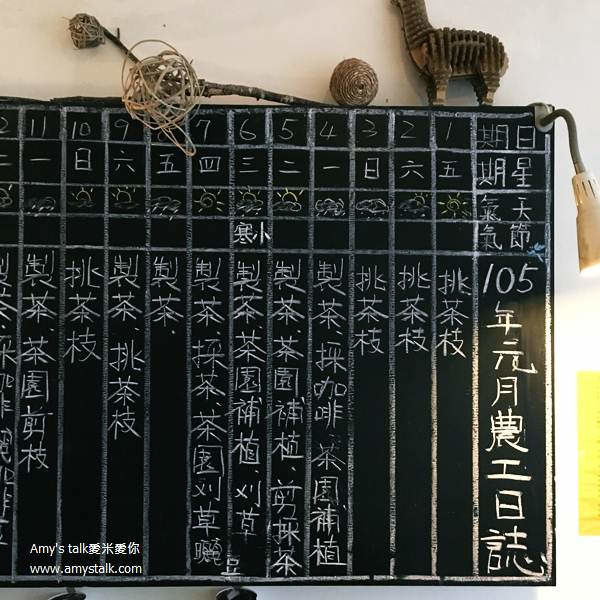 日期
星期
天氣
節氣
105年元月農工日誌
1
五
挑茶枝
2
六
挑茶枝
3
日
挑茶枝
4
一
製茶、採咖啡、茶園補植
5
二
製茶、茶園補植、剪採茶
6
三
小寒
製茶、茶園補植、刈草
7
四
製茶、採茶、茶園刈草、曬
豆
五
製茶、
9
六
製茶、挑茶枝
10
日
挑茶枝
11
一
製茶、茶園剪枝
2
二
Amy's talk愛米愛你
www.amystalk.com